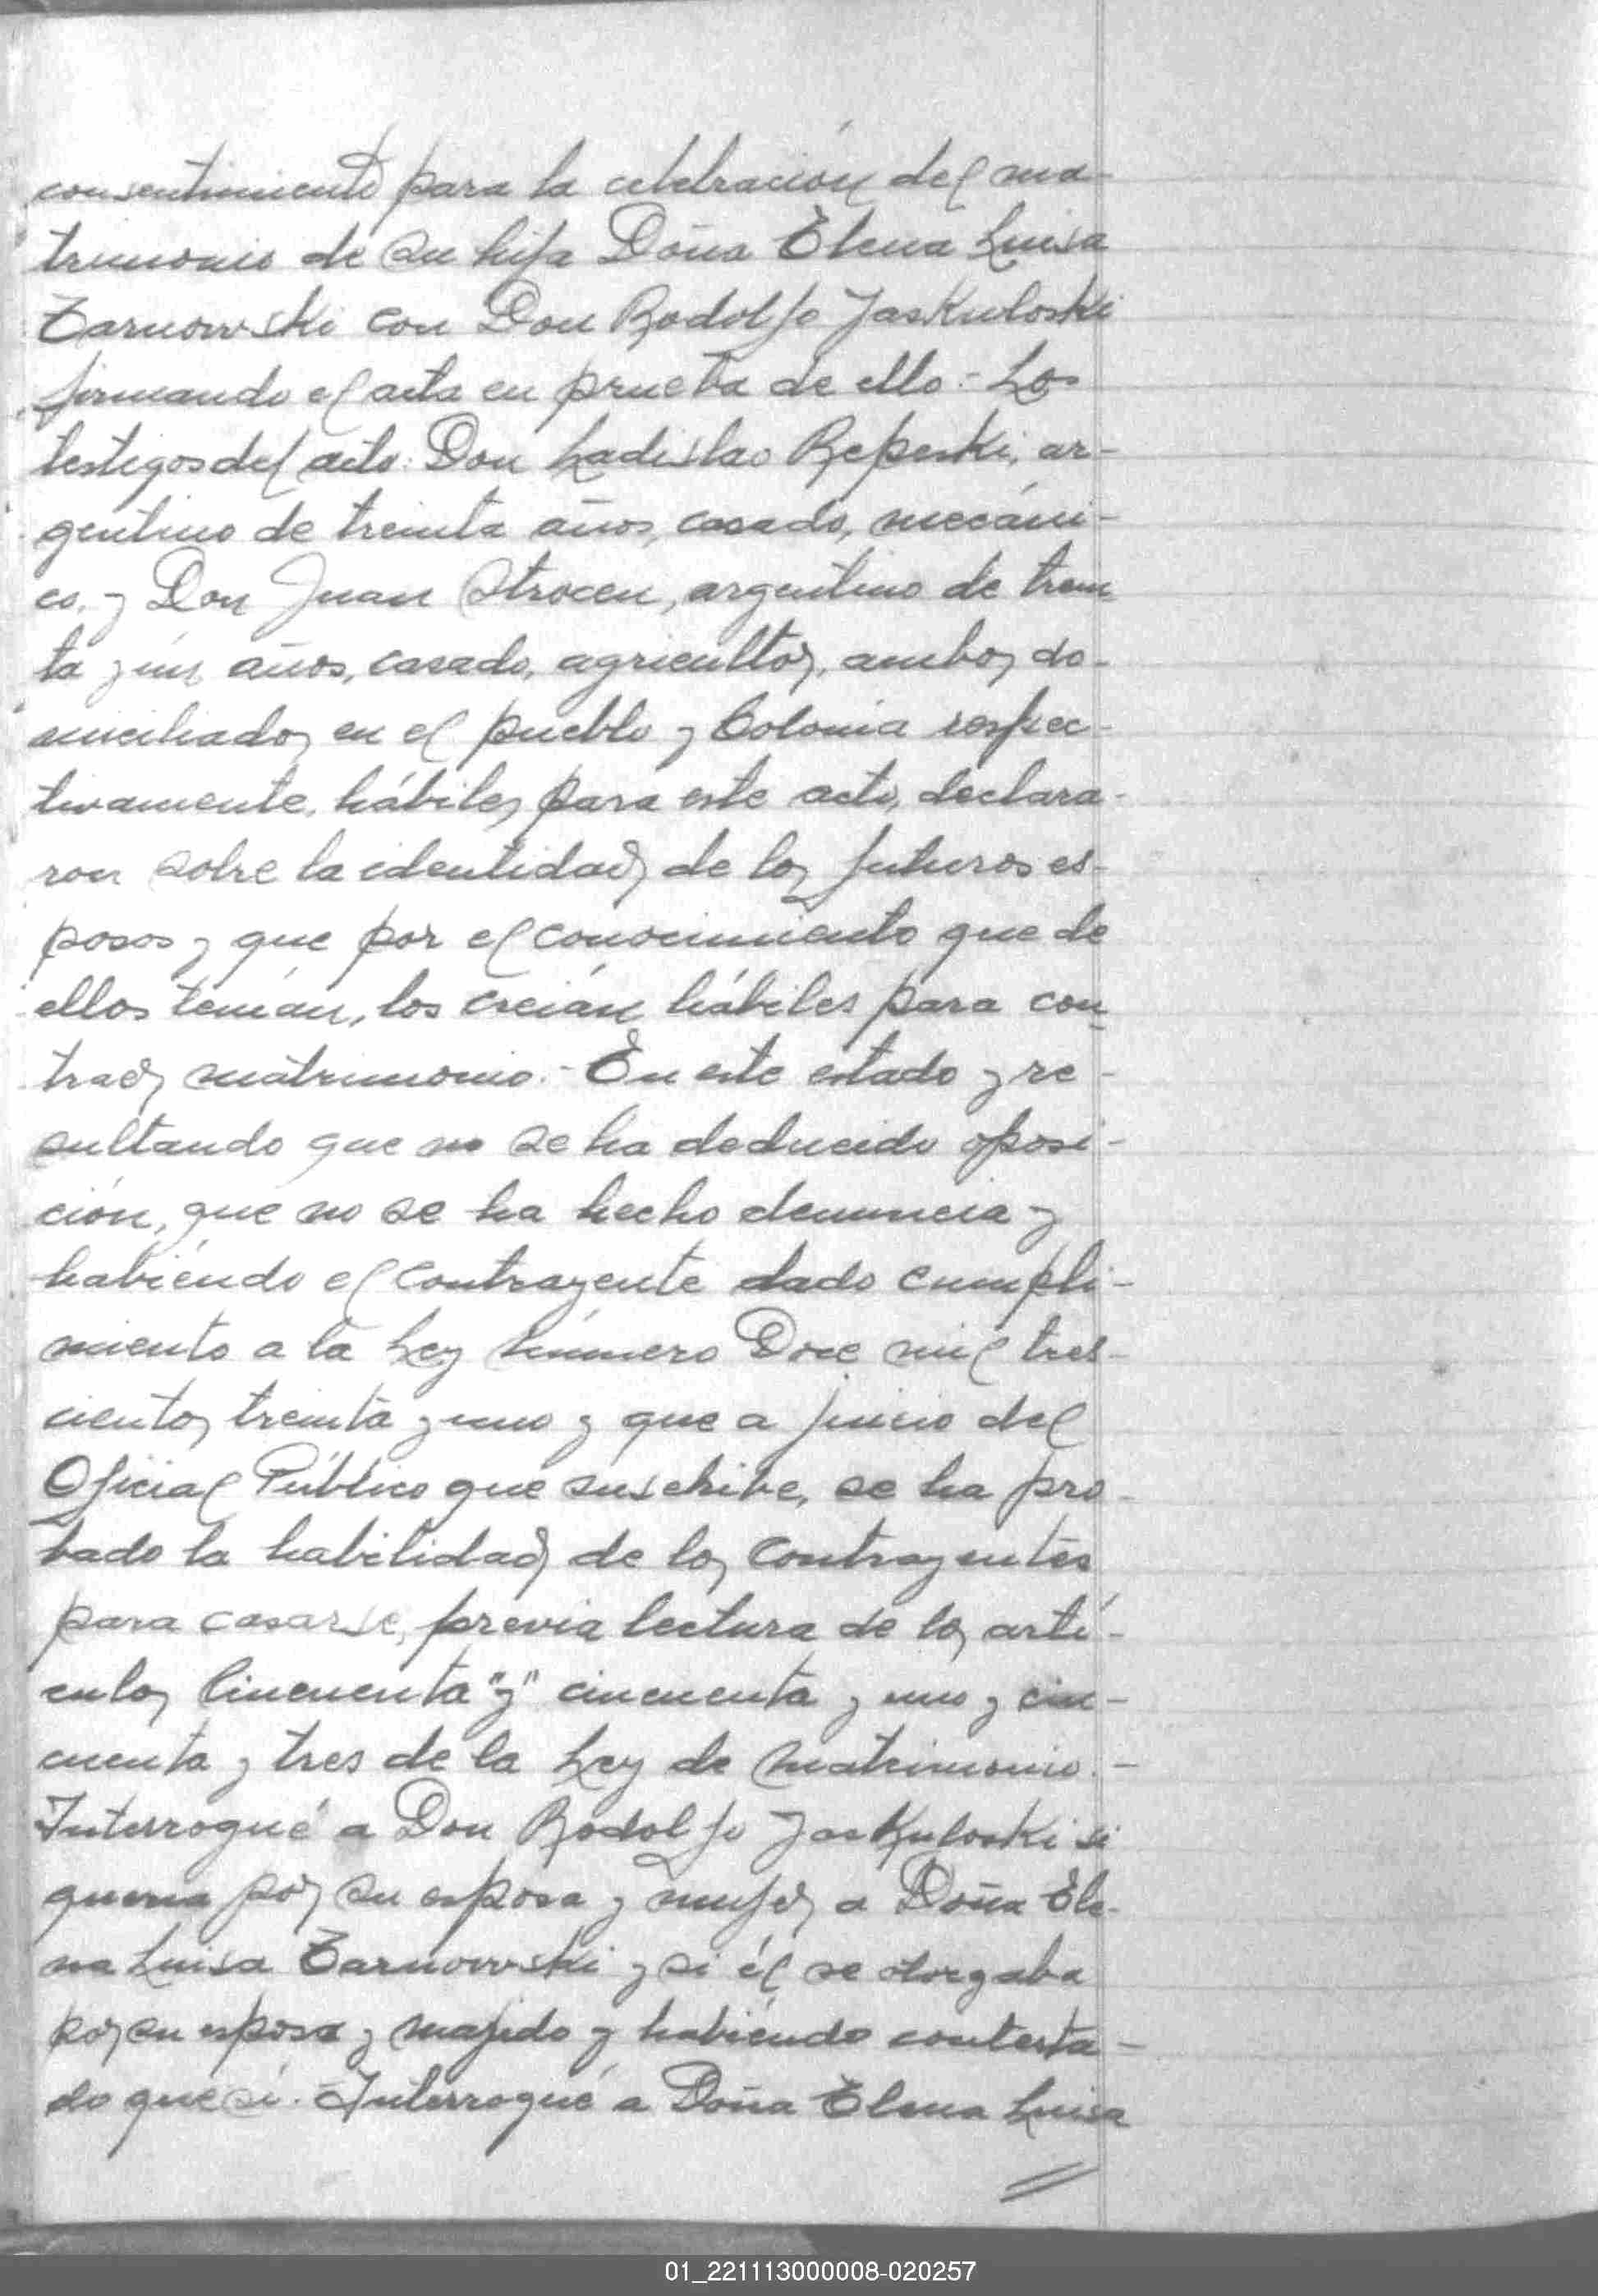 consentimiento para la celebración del ma-
trimonio de su hija Doña Elena Luisa
Zarnowski con Don Rodolfo Jaskuloski
firmando el acta en prueba de ello.- Los
testigos del acto: Don Ladislao Repeski, ar-
gentino de treinta años, casado, mecáni-
co, y Don Juan Strocen, argentino de trein-
ta y un años, casado, agricultor, ambos do-
miciliados en el pueblo y Colonia respec-
tivamente, hábiles para este acto, declara-
ron sobre la identidad de los futuros es-
posos y que por el conocimiento que de
ellos tenían, los creían hábiles para con-
traer matrimonio.- En este estado y re-
sultando que no se ha deducido oposi-
ción, que no se ha hecho denuncia y
habiendo el contrayente dado cumpli-
miento a la Ley número Doce mil tres-
cientos treinta y uno y que a juicio del
Oficial Público que suscribe, se ha pro-
bado la habilidad de los contrayentes
para casarse, previa lectura de los artí-
culos Cincuenta "y" cincuenta y uno y cin-
cuenta y tres de la Ley de Matrimonio.-
Interrogué a Don Rodolfo Jaskuloski si
queria por su esposa y mujer a Doña Ele-
na Luisa Zarnowski y si él se otorgaba
por su esposo y marido y habiendo contesta-
do que si. Interrogué a Doña Elena Luisa
01_221113000008-020257